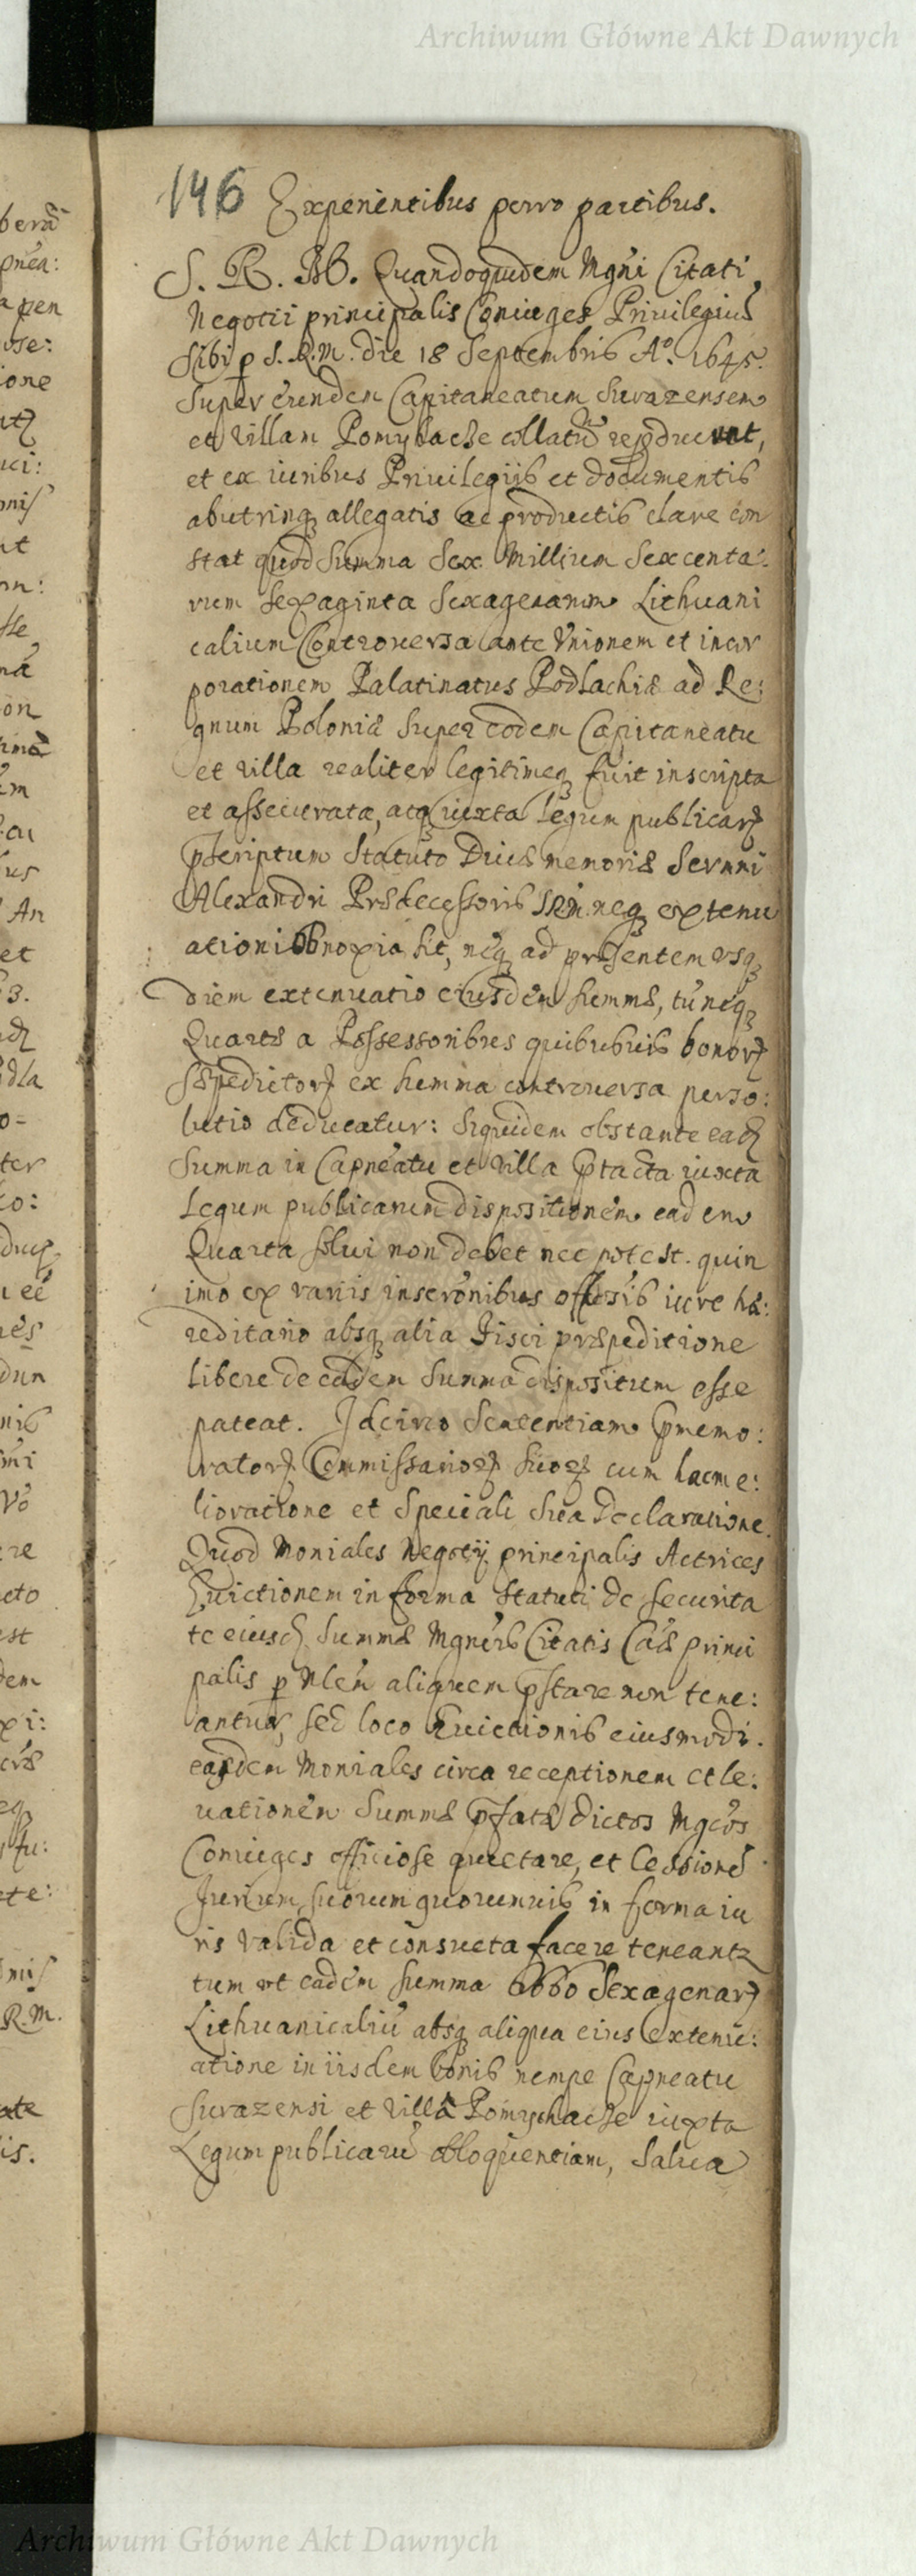 Archiwum Główne Akt Dawnych
146 Experientibus porro partibus.
S. R. M. Quandoquidem Mgńi Citati,
Negotii principalis Coniuges Priuilegiuḿ
Sibi p S. R. M. die 18 Septembris Aº. 1645.
Super eundem Capitaneatum Surazensem
et Villam Pomyhacze collatū reproducunt,
et ex iuribus Priuilegiis et documentis
abutrinq allegatis ac productis clare con
stat quod Summa Sex Millium Sexcenta:
rum Sexaginta Sexagenarum Lithuani
calium Controuersa ante Vnionem et incor
porationem Palatinatus Podlachiæ ad Re:
gnum Poloniæ super eodem Capitaneatu
et Villa realiter legitimeq fuit inscripta
et assecurata, atq iuxta legum publicarȝ
pscriptum Statuto Diuæ memoriæ Sermi
Alexandri Prædecessoris SRM. neq extenu
ationi obnoxia sit, neq ad præsentem vsq
diem extenuatio eiusdem summæ, tū neq
Quartæ a Possessoribus quibusuis bonorȝ
ex summa controuersa perso:
lutio deducatur: siquidem obstante eadȝ
Summa in Capneatu et Villa ptacta iuxta
Legum publicarum dispositionem eadem
Quarta solui non debet nec potest. quin
imo ex variis inscrōnibus iure hæ:
reditario absq alia Fisci præpeditione
libere de eadem Summa dispositum esse
pateat. Idcirco Sententiam pmemo:
ratorȝ Commissariorȝ suorȝ cum hac me:
lioratione et Speciali sua Declaratione.
Quod Moniales Negotij principalis Actrices
Euictionem in forma Statuti de securita
te eiusdȝ Summæ Mgńis Citatis Cāæ princi
palis p aliquem pstare non tene:
antur, sed loco Euictionis eiusmodi.
eaedem Moniales circa receptionem et le:
uationem Summæ pfatæ dictos Mgcos
Coniuges officiose quietare, et Cessionē
Iurium suorum quorumuis in forma iu
ris valida et consueta facere teneantȝ
tum vt eadem summa 6660 Sexagenarȝ
Lithuanicaliū absq aliqua eius extenu:
atione in iisdem bonis nempe Capneatu
Surazensi et Villa Pomyhacze iuxta
Legum publicarū obloquentiam, Salua
Archiwum Główne Akt Dawnych